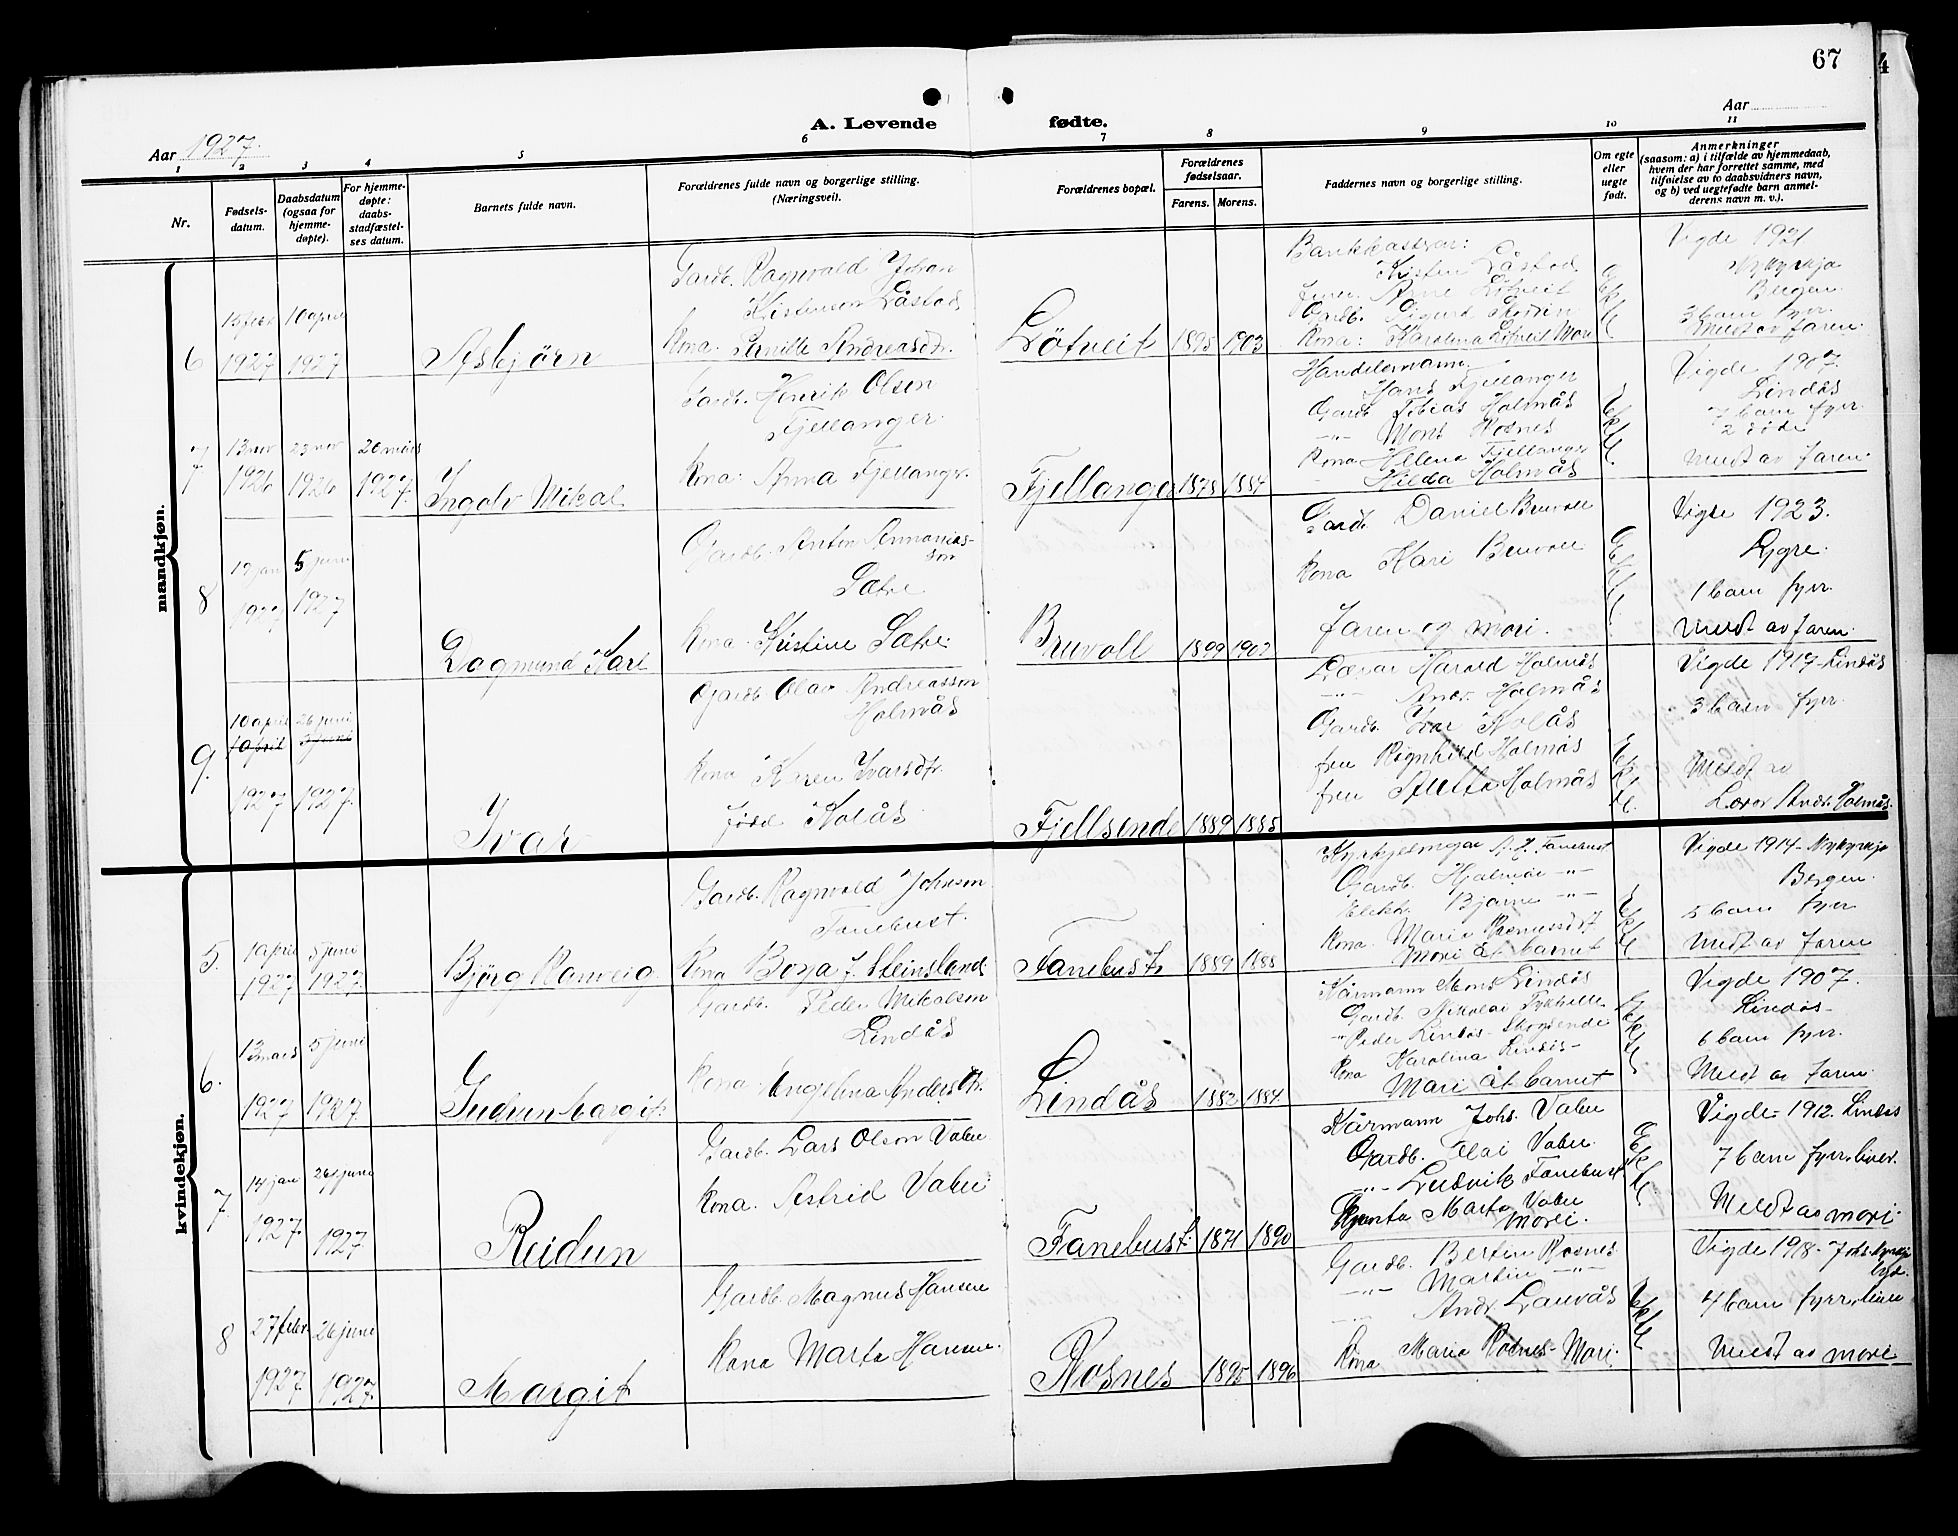 67
4
A. Levende
fødte.
Aar 1927.
Aar
1
2
3
4
5
6
7
8
9
10
11
Nr.
Fødsels-
datum.
Daabsdatum
(ogsaa for
hjemme-
døpte).
For hjemme-
døpte:
daabs-
stadfæstel-
ses datum.
Barnets fulde navn.
Forældrenes fulde navn og borgerlige stilling.
(Næringsvei).
Forældrenes bopæl.
Forældrenes
fødselsaar.
Farens.
Morens.
Faddernes navn og borgerlige stilling.
Om egte
eller
uegte
født.
Anmerkninger
(saasom: a) i tilfælde av hjemmedaab,
hvem der har forrettet samme, med
tilføielse av to daabsvidners navn,
og b) ved uegtefødte barn anmel-
derens navn m. v.).
mandkjøn.
6
15 febr
1927
10 april
1927
Asbjørn
Gardb. Ragnvald Johan
Kristensen Låstad
Kona. Pernille Andreasdtr.
Lötveit
1895
1903
Kristen Låstad
Arne Lötveit
Gardb. Sigurd
Kona: Karolina Lötveit Mori
Ekte
Vigde 1921
Nykyrkja
Bergen.
3 barn fyrr.
Meldt av faren.
7
13 nov
1926
23 nov
1926
26 mars
1927.
Ingolv Mikal
Gardb. Henrik Olsen
Fjellanger.
Kona: Anna Fjellanger.
Fjellanger
1878
1884
Handelsmann
Hans Fjellanger
Gardb Tobias Holmås
-"- Mons Rosnes
Kona Hellena Fjellanger
Hilda Holmås
Ekte
Vigde 1907.
Lindås
7 barn fyrr
2 döde
Meldt av faren.
8
19 jan
1927
5 juni
1927
Dagmund Karl
Gardb. Anton Annanias-
son
Sætre
Kona. Kristine Sætre.
Bruvoll
1899
1902
Gardb. Daniel Bruvoll
Kona Kari Bruvoll
Faren og mori.
Ekte
Vigde 1923.
Lygre.
1 barn fyrr.
Meldt av faren.
9.
10 april
1 april
1927
26 juni
5 juni
1927.
Ivar
Gardb. Olav Andreasson
Holmås
Kona Karen Ivarsdtr.
född Kolås
Fjellsende
1889
1885
Lærar Harald Holmås
-"- Andr. Holmås
Gardb. Ivar Kolås
fru Ragnhild Holmås
frru Holmås
Ekte
Vigde 1917 - Lindås
3 barn fyrr.
Meldt av
Lærar Andr. Holmås.
kvindekjøn.
5.
1 april
1927
5 juni
1927
Björg Ranveig
Gardb. Ragnvald Johnson
Fanebust.
Kona Borga J. Steinsland.
Fanebust
1889
1888
Kyrkjesongar A. J. Fanebust
Gardb. Hjalmar -"-
Elekt. Bjarne -"-
Kona. Marie Rasmusdtr
Mori åt barnet
Ekte
Vigde 1914 - Nykyrkja
Bergen.
5 barn fyrr
Meldt av faren
6.
13 mars
1927
5 juni
1927
Gudrun Margit
Gardb. Peder Mikalson
Lindås
Kona. Angelina Andersdtr.
Lindås
1882
1884
Kårmann Mons Lindås
Gardb. Nikolai
-"- Peder Lindås - Skogsende
Kona Karolina Lindås -
Mori åt barnet
Ekte
Vigde 1907.
Lindås -
6 barn fyrr.
Meldt av faren.
7.
14 jan
1927
26 juni
1927
Reidun
Gardb. Lars Olson Vabö
Kona. Astrid Vabö
Fanebust.
1871
1890
Kårmann Johs. Vabö
Gardb. Vabö.
-"- Ludvik Fanebust
Gjenta Marta Vabö
Mori.
Ekte
Vigde - 1912. Lindås
7 barn fyrr, liver.
Meldt av mori.
8
27 febr
1927.
26 juni
1927.
Margit
Gardb. Magnus Hansen
Kona Marta Hansen.
Rosnes
1895
1896
Gardb. Bertin Rosnes
Martin -"-
Andr Lauvås
Kona Marie Rosnes - Mori.
Ekte
Vigde 1918 - Johs. kyrkja
4 barn fyrr, liver
Meldt av mori